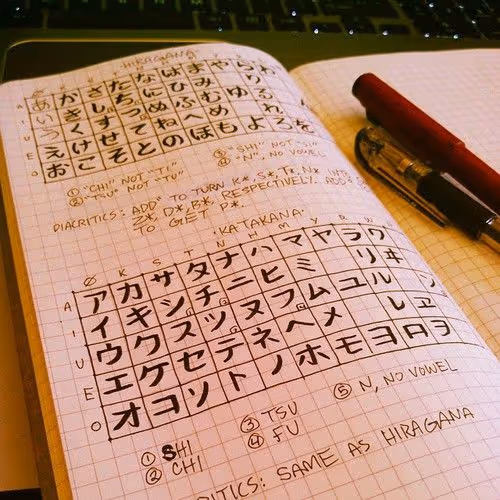 HIRAGANA
あ か さ た な は ま や ら わ
い き し ち に ひ み り
う く す つ ぬ ふ む ゆ る
え け せ て ね へ め れ
お こ そ と の ほ も よ ろ を
① "CHI" NOT "TI"
② "TSU" NOT "TU"
③ "SHI" NOT "SI"
④ "N", NO VOWEL
DIACRITICS: ADD " TO TURN K*, S*, T*, N* INTO
Z*, D*, B*, RESPECTIVELY. ADD °
TO GET P*.
·KATAKANA·
Ø K S T N H M Y R W
A ア カ サ タ ナ ハ マ ヤ ラ ワ
I イ キ シ チ ニ ヒ ミ リ ヰ
U ウ ク ス ツ ヌ フ ム ユ ル
E エ ケ セ テ ネ ヘ メ レ ヱ
O オ コ ソ ト ノ ホ モ ヨ ロ ヲ
① SHI
② CHI
③ TSU
④ FU
⑤ N, NO VOWEL
CRITICS: SAME AS HIRAGANA